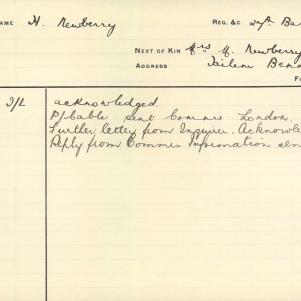 AME H. Newberry REG. &C 27th Ba
NEXT OF KIN Mrs M. Newberry
ADDRESS Tailem Bend
F
I/L acknowledged.
P/Cable sent Commis London.
Further letter from Inquirer. Acknowle
Reply from Commis Information sen